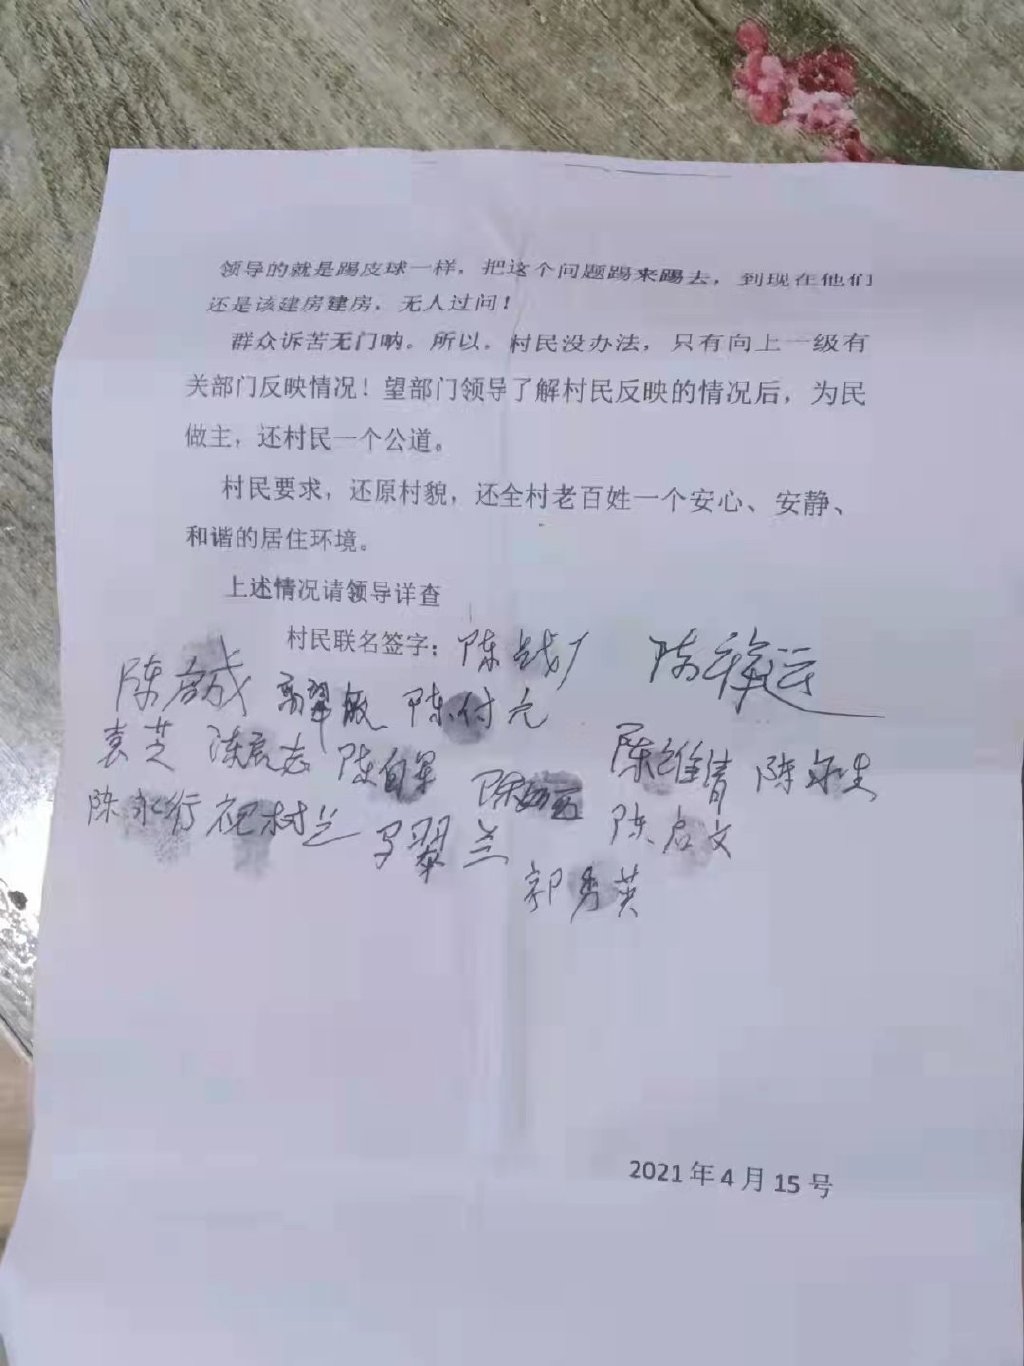 领导的就是踢皮球一样，把这个问题踢来踢去，到现在他们
还是该建房建房．无人过问！
群众诉苦无门呐。所以。村民没办法，只有向上一级有
关部门反映情况！望部门领导了解村民反映的情况后，为民
做主，还村民一个公道。
村民要求，还原村貌，还全村老百姓一个安心、安静、
和谐的居住环境。
上述情况请领导详查
村民联名签字：陈 陈
陈 陈付元
袁芝 陈 陈自军 陈维清 陈
陈永行 祝树兰 翠兰 陈启文
郭秀英
2021年4月15号